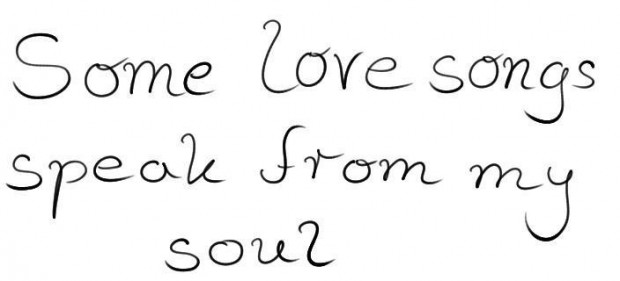 Some love songs
speak from my
soul